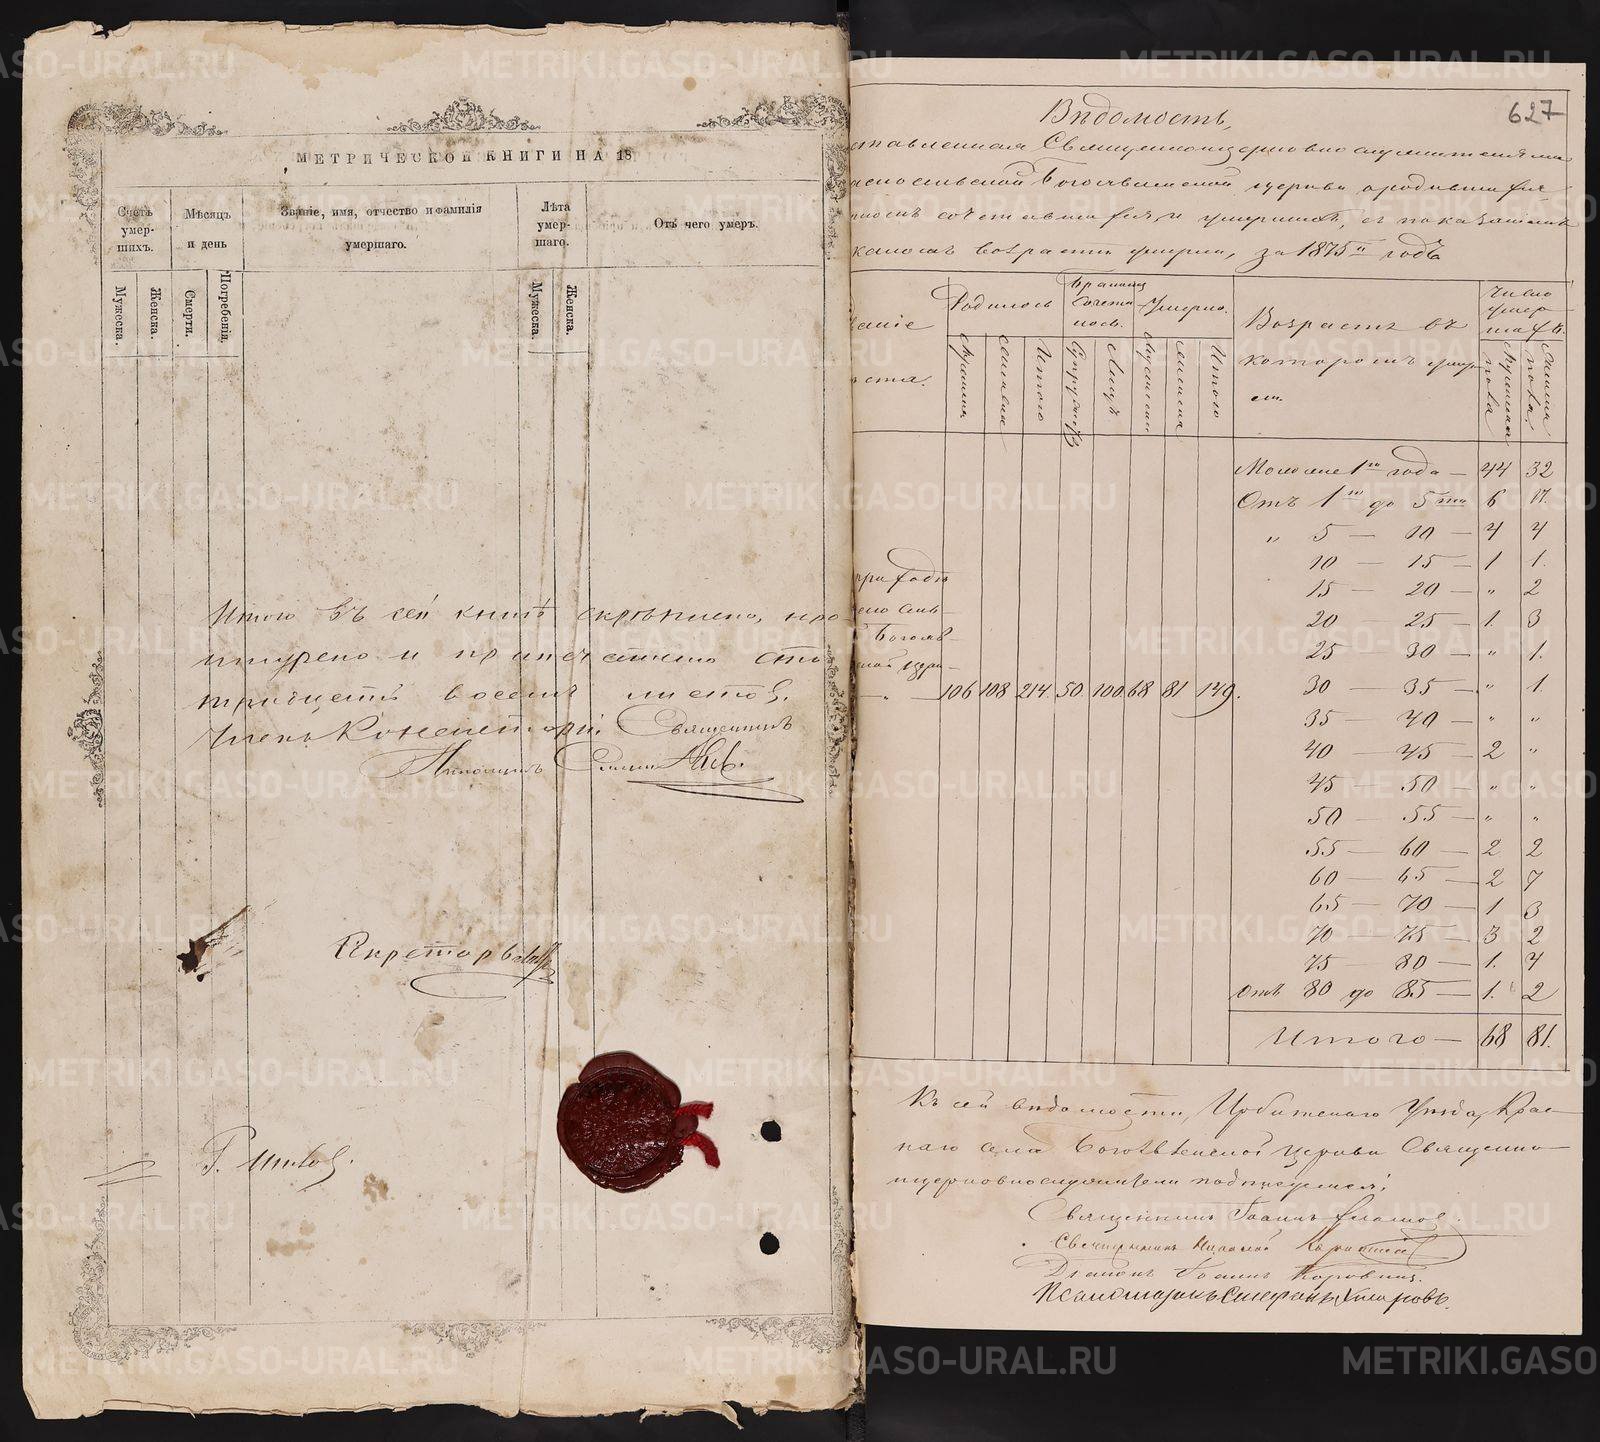 МЕТРИЧЕСКОЙ КНИГИ НА 18
Счетъ умер-шихъ.
Мѣсяцъ и день
Званіе, имя, отчество и фамилія умершаго.
Лѣта умер-шаго.
Отъ чего умеръ.
Мужеска.
Женска.
Смерти.
Погребенія.
Мужеска.
Женска.
Итого въ сей книгѣ скрѣплено, про
шнурено и припечатано сто
тридцать восемь листов.
Членъ Консисторіи Священникъ
Секретарь
627
Вѣдомость,
ставленная Священноцерковнослужителями
расносельской Богоявленской церкви о родившихся
бракомъ сочетавшихся, и умершихъ, съ показаніемъ
въ какомъ возрастѣ умерли, за 1875й годъ
ваніе
ѣста.
Родилось
Бракомъ сочета-лось.
Умерло.
Возрастъ въ которомъ умер-ли.
Число умер-шихъ.
Мужеска
женска
Итого
Супружествъ
Лицъ
Мужеска
женска
Итого
Мужеска пола
Женска пола.
приходѣ
сель-
Богояв-
ской церк-
— „ — 106 108 214. 50. 100. 68 81 149.
Моложе 1го года — 44 32
Отъ 1го до 5ти 6 17.
„ 5 — 10 — 4 4
10 — 15 — 1 1.
15 — 20 — „ 2
20 25 — 1. 3
25 30 — „ 1.
30 — 35 — „ 1.
35 — 40 — „ „
40 — 45 — 2 „
45 — 50 — „ „
50 — 55 — „ „
55 — 60 — 2 2
60 — 65 — 2 7
65 — 70 — 1 3
70 — 75 — 3 2
75 — 80 — 1. 4
Отъ 80 до 85 — 1. 2
Итого — 68 81.
Къ сей вѣдомости, Ирбитскаго Уѣзда, Крас-
наго села Богоявленской церкви Священно-
церковнослужители подписуемся:
Священникъ Іоаннъ
Священникъ Николай
Діаконъ Іоаннъ Коровинъ.
Псаломщикъ Стефанъ
METRIKI.GASO-URAL.RU